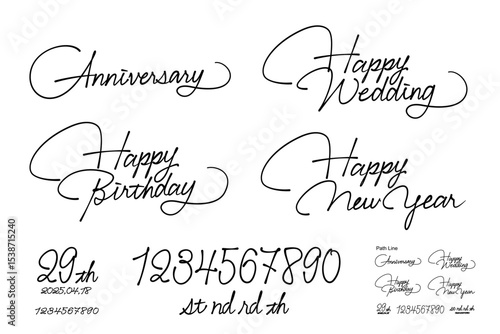 Anniversary
Happy
Wedding
Happy
Birthday
Happy
New Year
29th
2025.04.18
1234567890
1234567890
st nd rd th
Path Line
Anniversary
Happy
Wedding
Happy
Birthday
Happy
New Year
29th
1234567890
st nd rd th
Adobe Stock | #1538715240